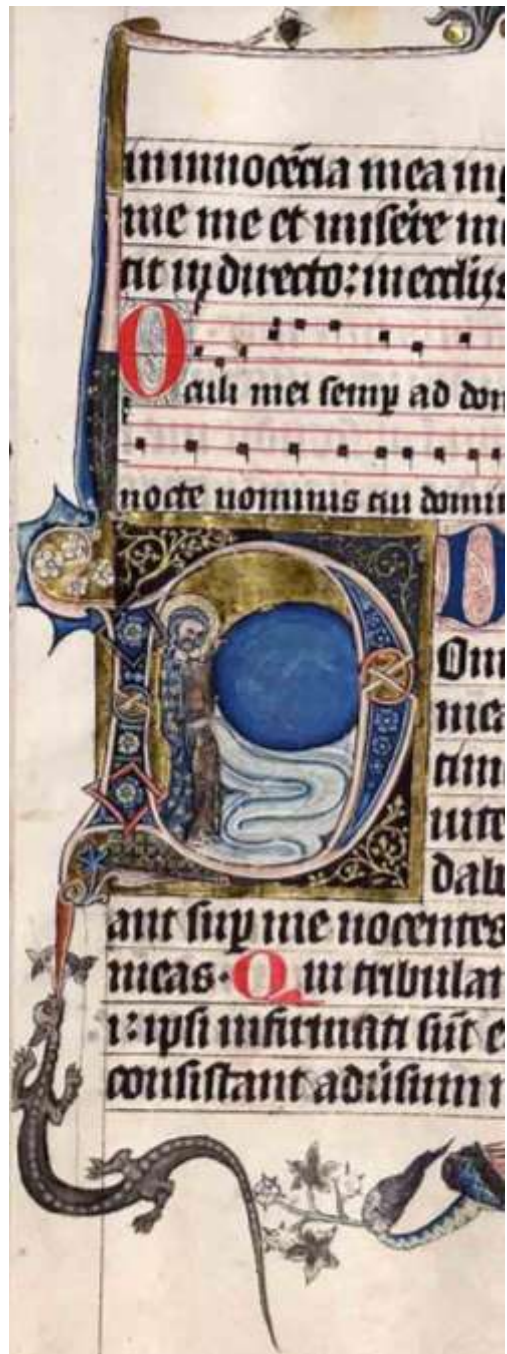 in innocēcia mea ing
me me et miſēre m
tit in directo: in eccliis
Oculi mei ſemp ad dom
nocte nominis tui domin
D
Omi
mea
tim
uite
dab
ant ſup me nocentes
meas · Qui tribulan
t ipſi infirmati ſūt e
conſiſtant adūſum m